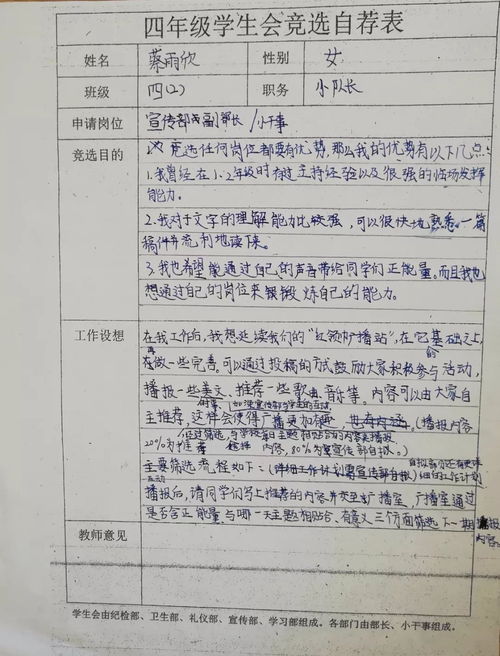 四年级学生会竞选自荐表
姓名 蔡雨欣 性别 女
班级 四(2) 职务 小队长
申请岗位 宣传部副部长/小干事
竞选目的 竞选任何岗位都要有优势,那么我的优势有以下几点:
1.我曾经在1-2年级时有过主持经验以及很强的临场发挥
能力。
2.我对于文字的理解能力比较强,可以很快地熟悉一篇
稿件并流利地读下来。
3.我也希望能通过自己的声音带给同学们正能量。而且我也
想通过自己的岗位来锻炼自己的能力。
工作设想 在我工作后,我想延续我们的“红领巾广播站”,在它基础之上,
再做一些完善,可以通过投稿的方式鼓励大家积极参与活动,
播报一些美文、推荐一些歌曲、音乐等。内容可以由大家自
主推荐,这样会使得广播更加有趣,也有内涵。(播报内容
20%为推荐 内容,80%为宣传部自拟。)
主要筛选流程如下:(详细工作计划需宣传部自拟)
播报后,请同学们写上推荐的内容并交至广播室,广播室通过
是否含正能量、与哪一天主题相贴合、有意义三个方面筛选下一期播报
内容。
教师意见
学生会由纪检部、卫生部、礼仪部、宣传部、学习部组成。各部门由部长、小干事组成。